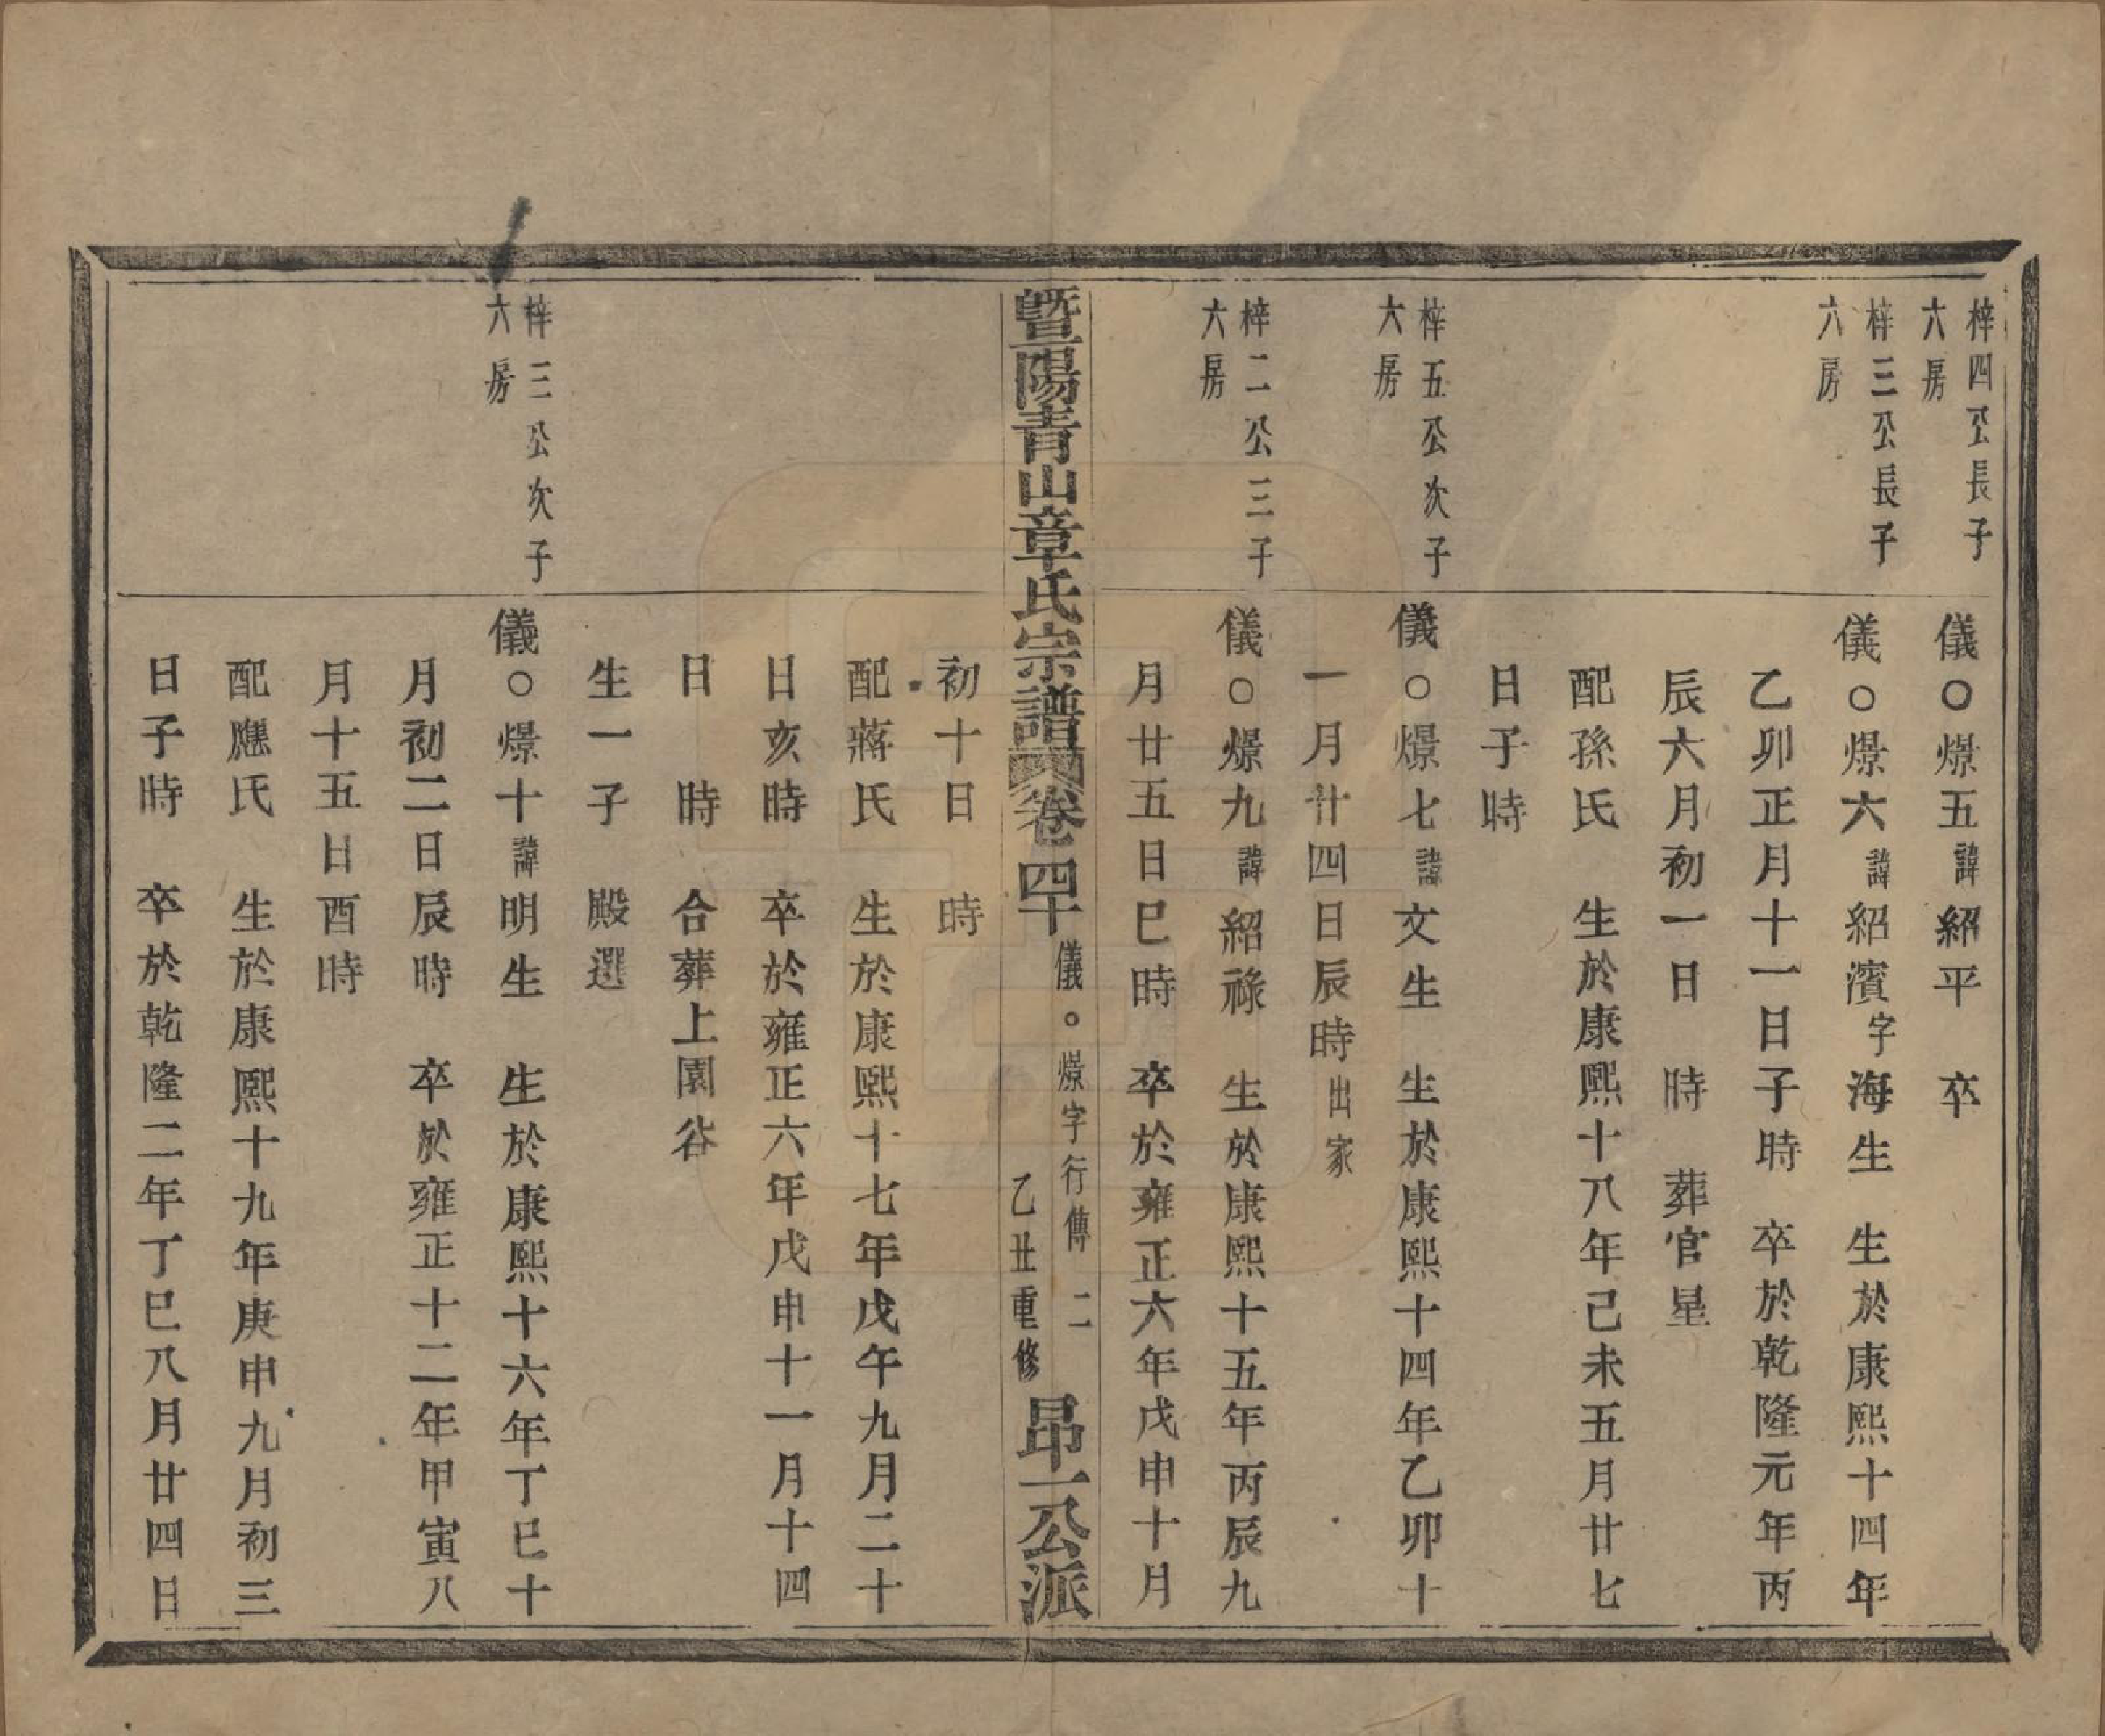 梓四公長子
六房
儀○燝五諱紹平　卒
梓三公長子
六房
儀○燝六諱紹濱字海生　生於康熙十四年
乙卯正月十一日子時　卒於乾隆元年丙
辰六月初一日　時　葬官星
配孫氏　生於康熙十八年己未五月廿七
日子時
梓五公次子
六房
儀○燝七諱文生　生於康熙十四年乙卯十
一月廿四日辰時出家
梓二公三子
六房
儀○燝九諱紹祿　生於康熙十五年丙辰九
月廿五日巳時　卒於雍正六年戊申十月
暨陽青山章氏宗譜卷四十
儀○燝字行傳　二
乙丑重修
昂一公派
初十日　時
配蔣氏　生於康熙十七年戊午九月二十
日亥時　卒於雍正六年戊申十一月十四
日　時　合葬上園谷
生一子　殿選
梓三公次子
六房
儀○燝十諱明生　生於康熙十六年丁巳十
月初二日辰時　卒於雍正十二年甲寅八
月十五日酉時
配應氏　生於康熙十九年庚申九月初三
日子時　卒於乾隆二年丁巳八月廿四日